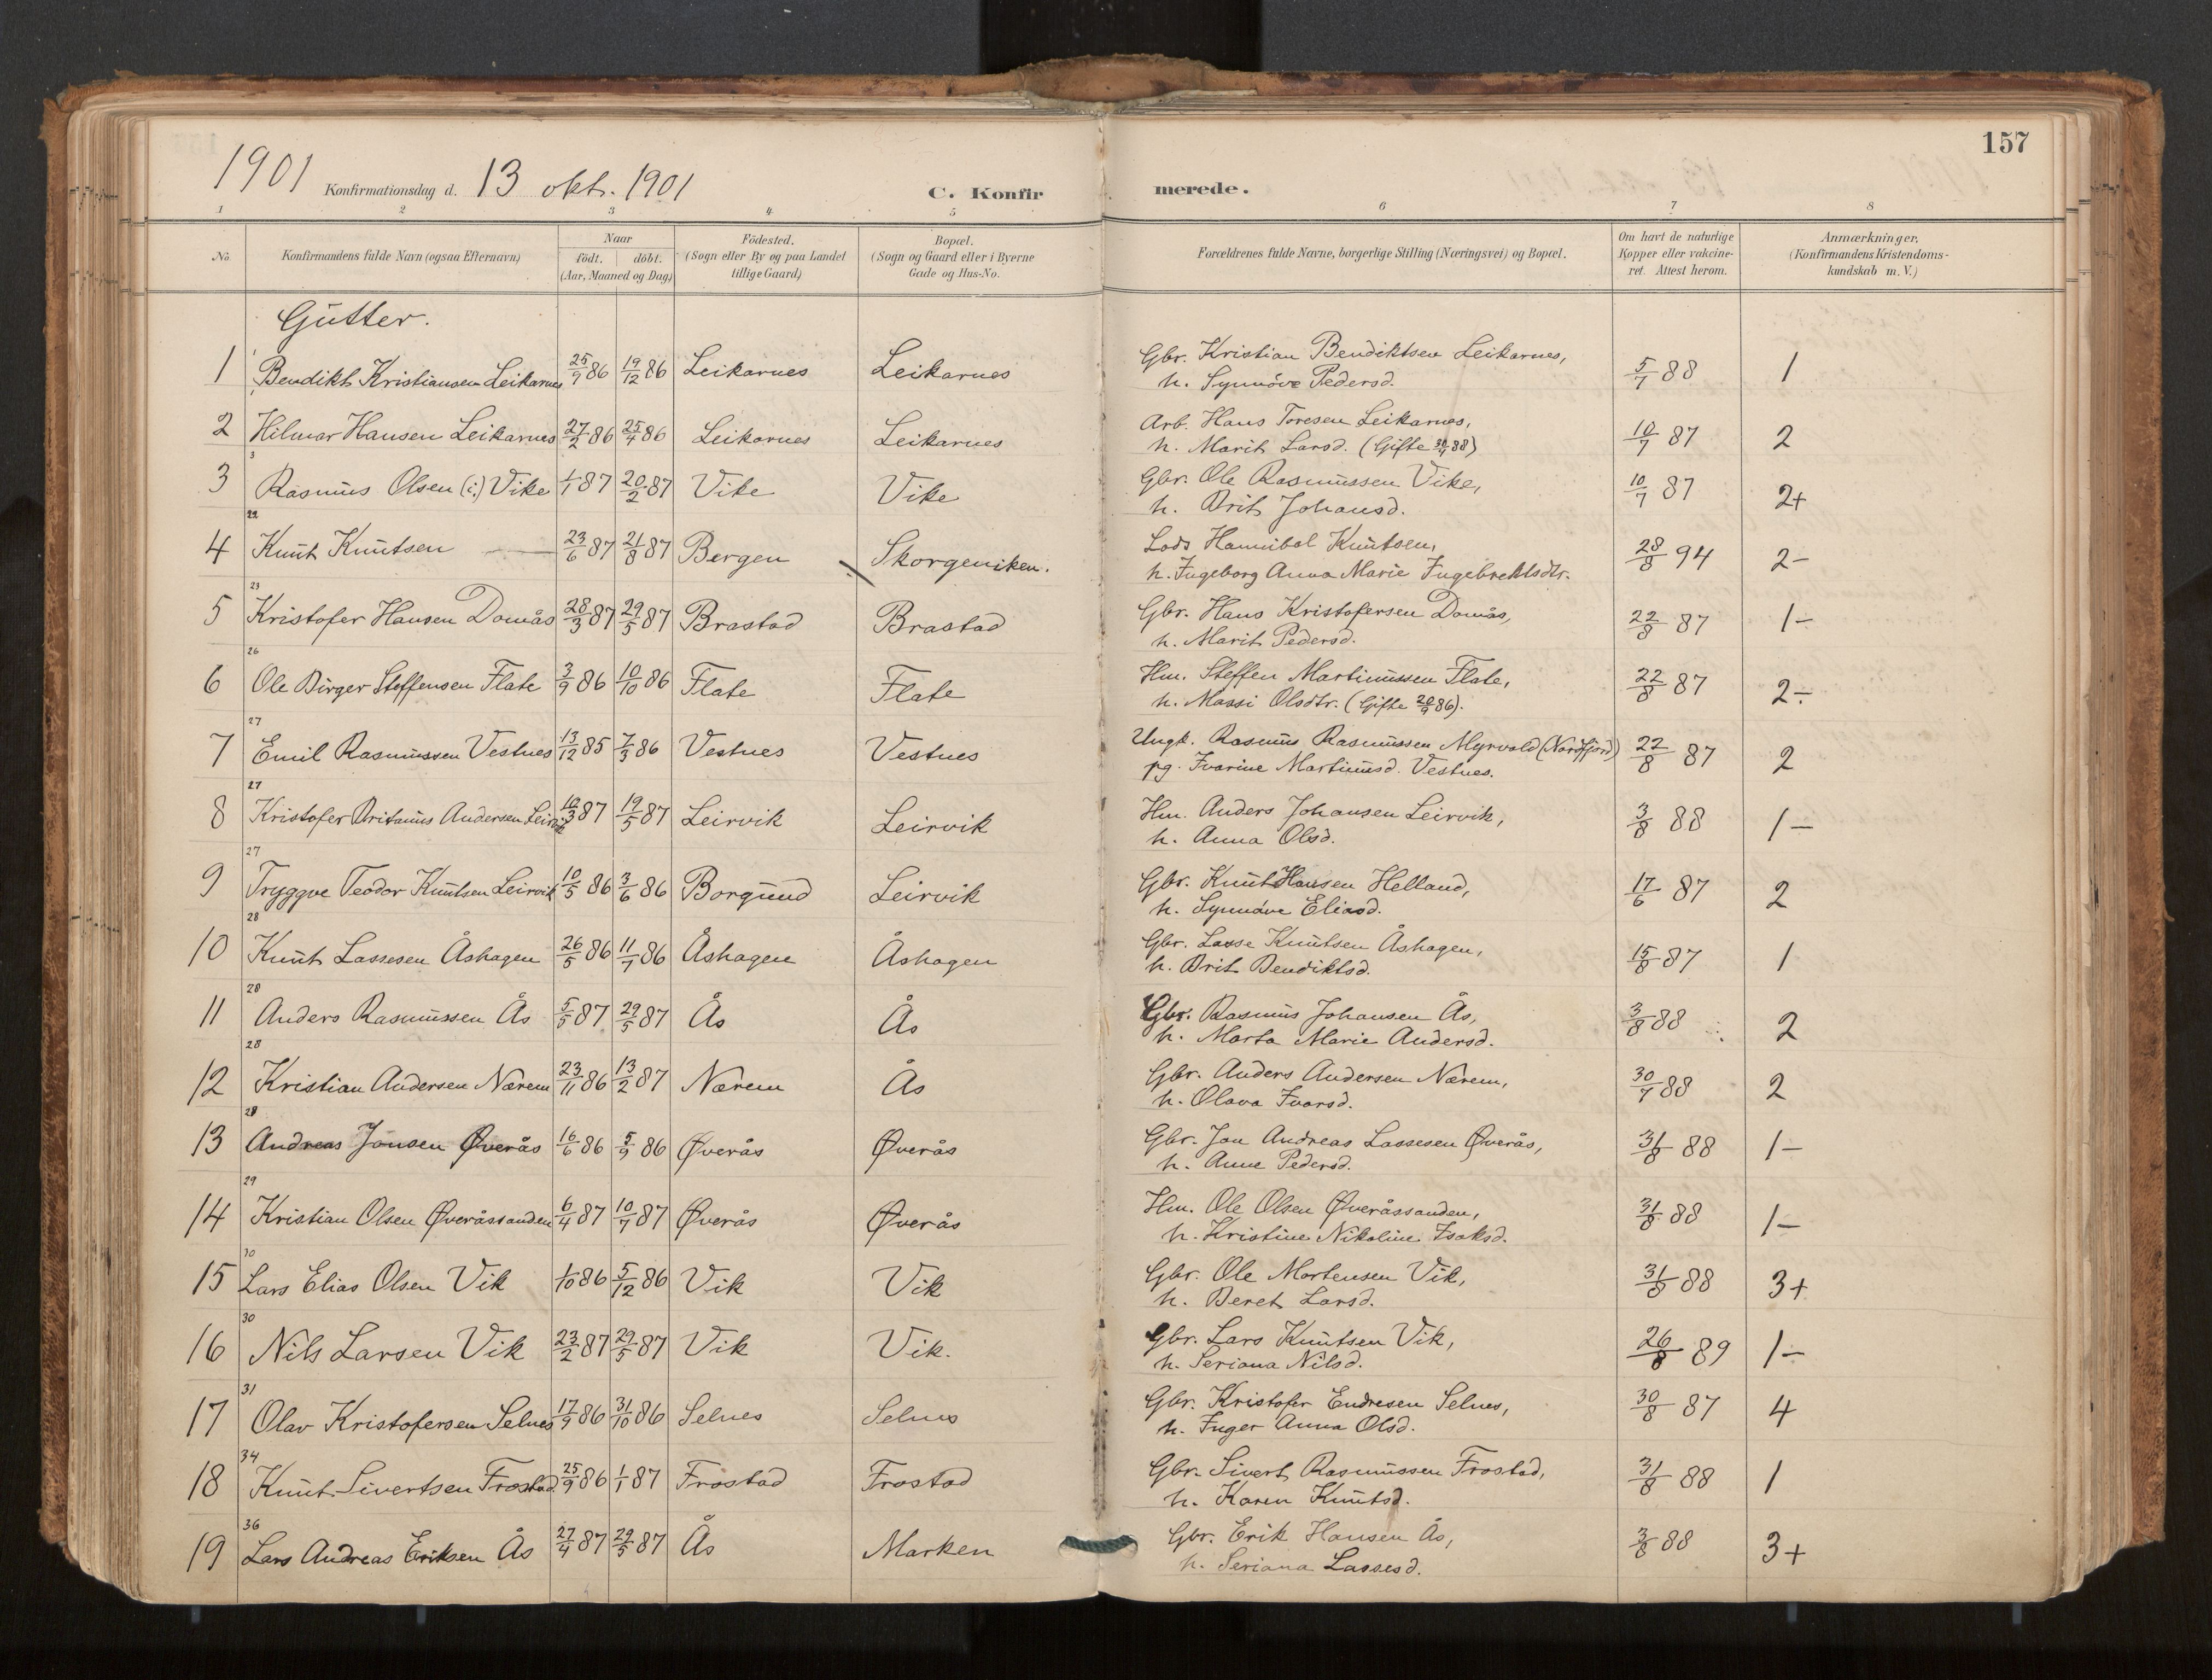 157
1901 Konfirmationsdag d. 13 okt. 1901 C. Konfirmerede.
1 2 3 4 5 6 7 8
No. Konfirmandens fulde Navn (ogsaa Efternavn) Naar födt. döbt. (Aar, Maaned og Dag) Födested. (Sogn eller By og paa Landet tillige Gaard) Bopæl. (Sogn og Gaard eller i Byerne Gade og Hus-No. Forældrenes fulde Navne, borgerlige Stilling (Næringsvei) og Bopæl. Om havt de naturlige Kopper eller vakcineret. Attest herom. Anmærkninger. (Konfirmandens Kristendomskundskab m. V.)
Gutter.
1 Bendikt Kristiansen Leikarnes 25/9 86 19/12 86 Leikarnes Leikarnes Gbr. Kristian Bendiktsen Leikarnes, 5/7 88 1
h. Synnöve Pedersd.
2 Hilmar Hansen Leikarnes 27/2 86 25/4 86 Leikarnes Leikarnes Arb. Hans Toresen Leikarnes, 10/7 87 2
h. Marit Larsd. (Gifte 88)
3
3 Rasmus Olsen (i) Vike 1/1 87 20/2 87 Vike Vike Gbr. Ole Rasmussen Vike, 10/7 87 2+
h. Brit Johansd.
22
4 Knut Knutsen — 23/6 87 21/8 87 Bergen Skorgeviken. Lods Hannibal Knutsen, 28/8 94 2-
h. Ingeborg Anna Marie Ingebrektsdtr.
23
5 Kristofer Hansen Domås 28/3 87 29/5 87 Brastad Brastad Gbr. Hans Kristofersen Domås, 22/8 87 1-
h. Marit Pedersd.
26
6 Ole Birger Steffensen Flate 3/9 86 10/10 86 Flate Flate Hm. Steffen Martinussen Flate, 22/8 87 2-
h. Massi Olsdtr. (Gifte 20/9 86).
27
7 Emil Rasmussen Vestnes 13/12 85 7/3 86 Vestnes Vestnes Ungk. Rasmus Rasmussen Myrvold (Nordfjord) 22/8 87 2
pg. Ivarine Martinusd. Vestnes.
27
8 Kristofer Britanus Andersen Leirvik 87 19/5 87 Leirvik Leirvik Hm. Anders Johansen Leirvik, 3/8 88 1-
h. Anna Olsd.
27
9 Tryggve Teodor Knutsen Leirvik 10/5 86 3/6 86 Borgund Leirvik Gbr. Knut Hansen Helland, 17/6 87 2
h. Synnöve Eliasd.
28
10 Knut Lassesen Åshagen 26/5 86 11/7 86 Åshagen Åshagen Gbr. Lasse Knutsen Åshagen, 15/8 87 1
h. Brit Bendiktsd.
28
11 Anders Rasmussen Ås 5/5 87 29/5 87 Ås Ås Gbr. Rasmus Johansen Ås, 3/8 88 2
h. Marta Marie Andersd.
28
12 Kristian Andersen Nærem 23/11 86 13/2 87 Nærem Ås Gbr. Anders Andersen Nærem, 30/7 88 2
h. Olava Ivarsd.
29
13 Andreas Jonsen Øverås 16/6 86 5/9 86 Øverås Øverås Gbr. Jon Andreas Lassesen Øverås, 31/8 88 1-
h. Anne Pedersd.
29
14 Kristian Olsen Øveråssanden 6/4 87 10/7 87 Øverås Øverås Hm. Ole Olsen Øveråssanden, 31/8 88 1-
h. Kristine Nikoline Isaksd.
30
15 Lars Elias Olsen Vik 1/10 86 5/12 86 Vik Vik Gbr. Ole Mortensen Vik, 31/8 88 3+
h. Beret Larsd.
30
16 Nils Larsen Vik 23/2 87 29/5 87 Vik Vik. Gbr. Lars Knutsen Vik, 26/8 89 1-
h. Seriana Nilsd.
31
17 Olav Kristofersen Selnes 17/9 86 31/10 86 Selnes Selnes Gbr. Kristofer Endresen Selnes, 30/8 87 4
h. Inger Anna Olsd.
34
18 Knut Sivertsen Frostad 25/9 86 1/1 87 Frostad Frostad Gbr. Sivert Rasmussen Frostad, 31/8 88 1
h. Karen Knutsd.
36
19 Lars Andreas Eriksen Ås 27/4 87 29/5 87 Ås Marken Gbr. Erik Hansen Ås, 3/8 88 3+
h. Seriana Lassesd.